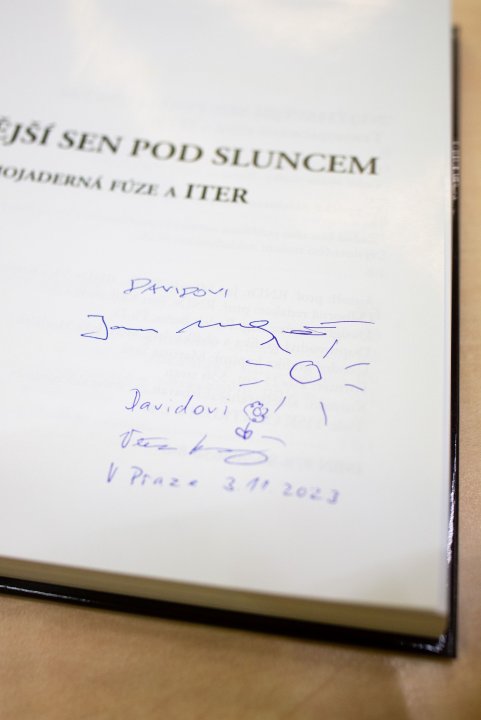 ĚJŠÍ SEN POD SLUNCEM
OJADERNÁ FÚZE A ITER
DAVIDOVI
Jan
Davidovi
V Praze 3.11 2023